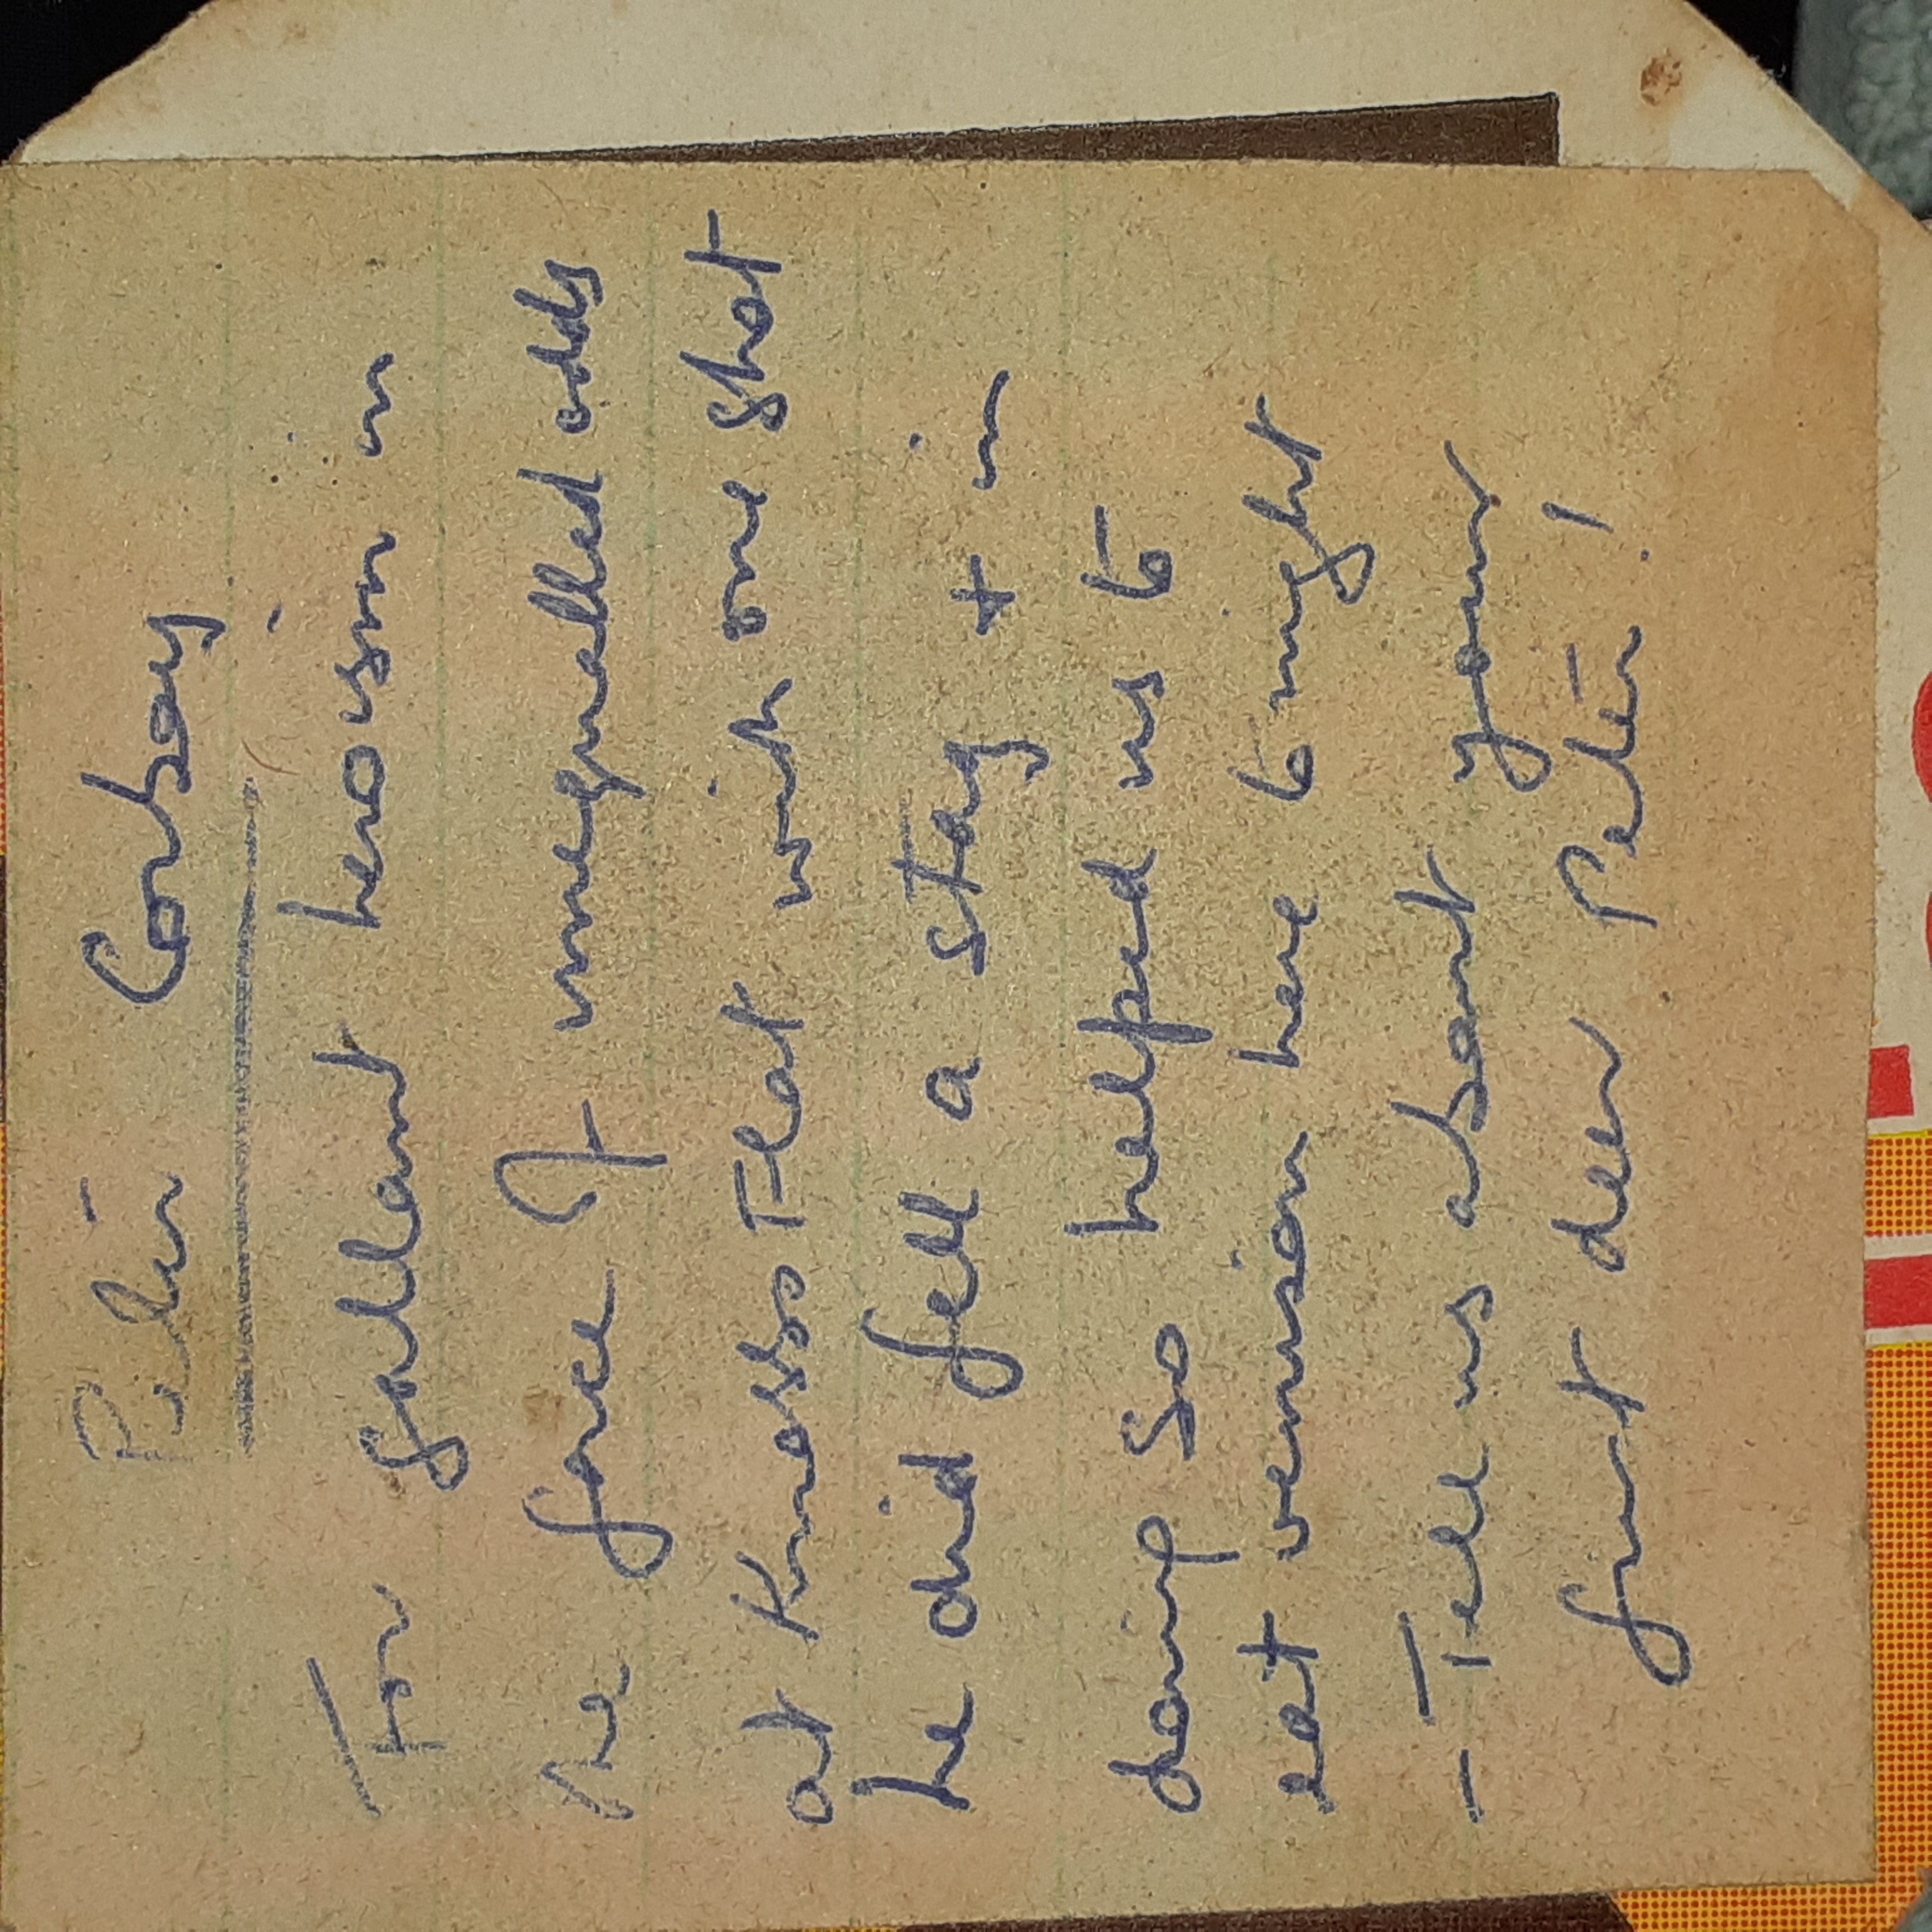 Peter Corboy
For gallant heroism in
the face of unequalled odds
at Kness Flat with one shot
he did fell a stag + in
doing so helped us to
eat venison here tonight
- Tell us about your
first deer Peter!